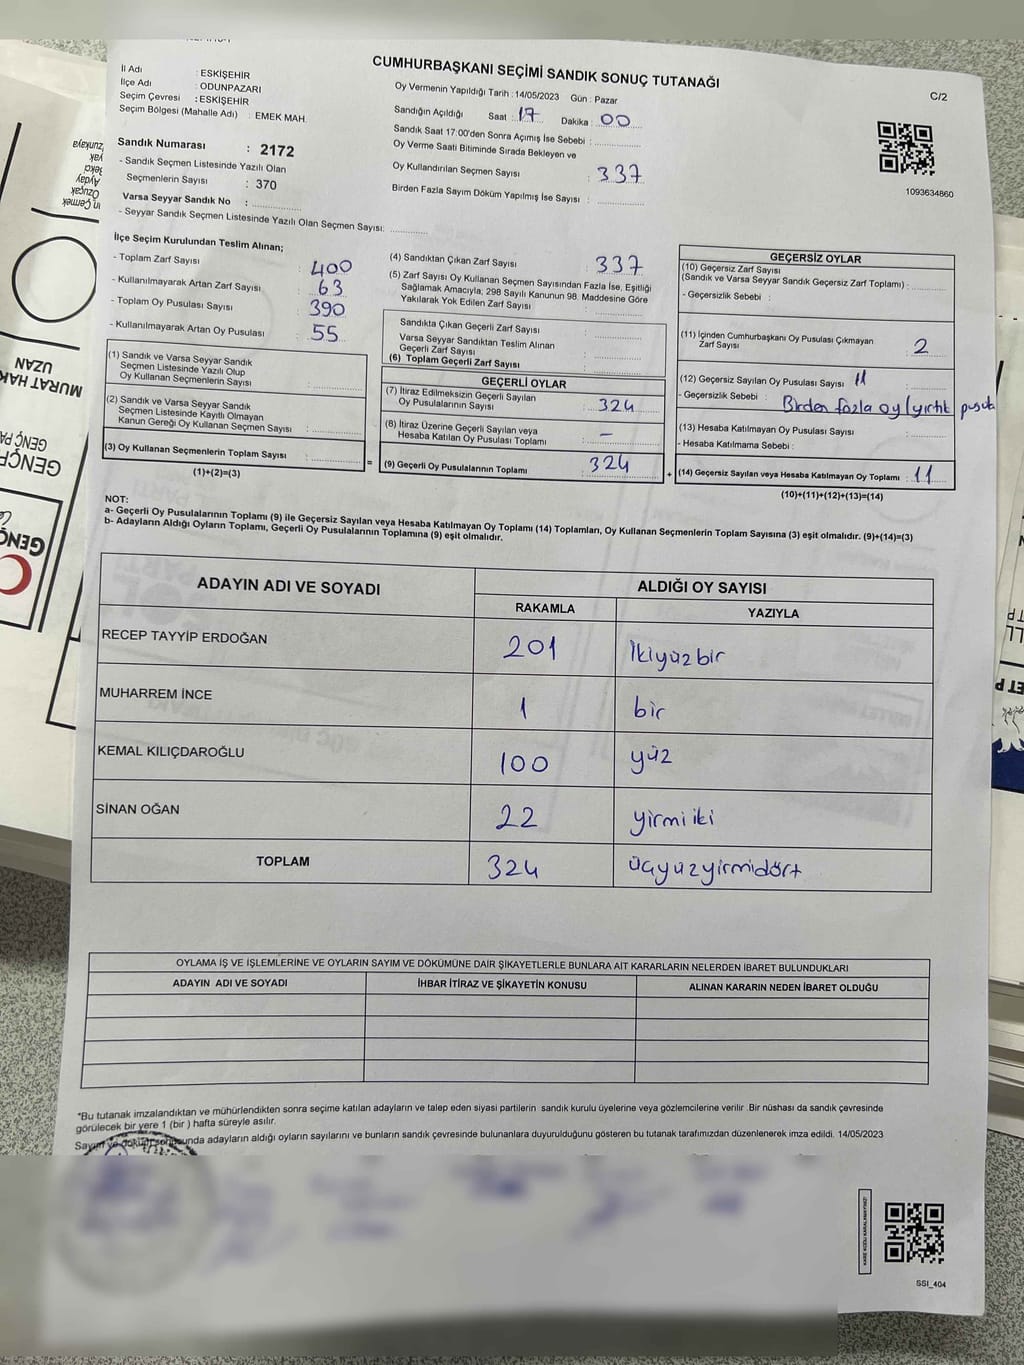 CUMHURBAŞKANI SEÇİMİ SANDIK SONUÇ TUTANAĞI
C/2
İl Adı : ESKİŞEHİR
İlçe Adı : ODUNPAZARI
Seçim Çevresi : ESKİŞEHİR
Seçim Bölgesi (Mahalle Adı) : EMEK MAH.
Oy Vermenin Yapıldığı Tarih : 14/05/2023 Gün : Pazar
Sandığın Açıldığı Saat : 17 Dakika : 00
Sandık Saat 17:00'den Sonra Açımış İse Sebebi :
Oy Verme Saati Bitiminde Sırada Bekleyen ve
Oy Kullandırılan Seçmen Sayısı : 337
Birden Fazla Sayım Döküm Yapılmış İse Sayısı :
1093634860
Sandık Numarası : 2172
- Sandık Seçmen Listesinde Yazılı Olan
Seçmenlerin Sayısı : 370
Varsa Seyyar Sandık No :
- Seyyar Sandık Seçmen Listesinde Yazılı Olan Seçmen Sayısı:
İlçe Seçim Kurulundan Teslim Alınan;
- Toplam Zarf Sayısı : 400
- Kullanılmayarak Artan Zarf Sayısı : 63
- Toplam Oy Pusulası Sayısı : 390
- Kullanılmayarak Artan Oy Pusulası : 55
(1) Sandık ve Varsa Seyyar Sandık
Seçmen Listesinde Yazılı Olup
Oy Kullanan Seçmenlerin Sayısı :
(2) Sandık ve Varsa Seyyar Sandık
Seçmen Listesinde Kayıtlı Olmayan
Kanun Gereği Oy Kullanan Seçmen Sayısı :
(3) Oy Kullanan Seçmenlerin Toplam Sayısı :
(1)+(2)=(3)
(4) Sandıktan Çıkan Zarf Sayısı : 337
(5) Zarf Sayısı Oy Kullanan Seçmen Sayısından Fazla İse, Eşitliği
Sağlamak Amacıyla, 298 Sayılı Kanunun 98. Maddesine Göre
Yakılarak Yok Edilen Zarf Sayısı :
Sandıkta Çıkan Geçerli Zarf Sayısı :
Varsa Seyyar Sandıktan Teslim Alınan
Geçerli Zarf Sayısı :
(6) Toplam Geçerli Zarf Sayısı :
GEÇERLİ OYLAR
(7) İtiraz Edilmeksizin Geçerli Sayılan
Oy Pusulalarının Sayısı : 324
(8) İtiraz Üzerine Geçerli Sayılan veya
Hesaba Katılan Oy Pusulası Toplamı : -
= (9) Geçerli Oy Pusulalarının Toplamı : 324
GEÇERSİZ OYLAR
(10) Geçersiz Zarf Sayısı
(Sandık ve Varsa Seyyar Sandık Geçersiz Zarf Toplamı) :
- Geçersizlik Sebebi :
(11) İçinden Cumhurbaşkanı Oy Pusulası Çıkmayan
Zarf Sayısı : 2
(12) Geçersiz Sayılan Oy Pusulası Sayısı 11
- Geçersizlik Sebebi : Birden fazla oy / yırtık pusula
(13) Hesaba Katılmayan Oy Pusulası Sayısı :
- Hesaba Katılmama Sebebi :
+ (14) Geçersiz Sayılan veya Hesaba Katılmayan Oy Toplamı : 11
(10)+(11)+(12)+(13)=(14)
NOT:
a- Geçerli Oy Pusulalarının Toplamı (9) ile Geçersiz Sayılan veya Hesaba Katılmayan Oy Toplamı (14) Toplamları, Oy Kullanan Seçmenlerin Toplam Sayısına (3) eşit olmalıdır. (9)+(14)=(3)
b- Adayların Aldığı Oyların Toplamı, Geçerli Oy Pusulalarının Toplamına (9) eşit olmalıdır.
ADAYIN ADI VE SOYADI ALDIĞI OY SAYISI
RAKAMLA YAZIYLA
RECEP TAYYİP ERDOĞAN 201 İkiyüzbir
MUHARREM İNCE 1 bir
KEMAL KILIÇDAROĞLU 100 yüz
SİNAN OĞAN 22 yirmi iki
TOPLAM 324 üçyüzyirmidört
OYLAMA İŞ VE İŞLEMLERİNE VE OYLARIN SAYIM VE DÖKÜMÜNE DAİR ŞİKAYETLERLE BUNLARA AİT KARARLARIN NELERDEN İBARET BULUNDUKLARI
ADAYIN ADI VE SOYADI İHBAR İTİRAZ VE ŞİKAYETİN KONUSU ALINAN KARARIN NEDEN İBARET OLDUĞU
*Bu tutanak imzalandıktan ve mühürlendikten sonra seçime katılan adayların ve talep eden siyasi partilerin sandık kurulu üyelerine veya gözlemcilerine verilir .Bir nüshası da sandık çevresinde
görülecek bir yere 1 (bir ) hafta süreyle asılır.
Sayım ve döküm sonucunda adayların aldığı oyların sayılarını ve bunların sandık çevresinde bulunanlara duyurulduğunu gösteren bu tutanak tarafımızdan düzenlenerek imza edildi. 14/05/2023
SSI_404
MURAT HAK
UZAN
GENÇ PA
GENÇ